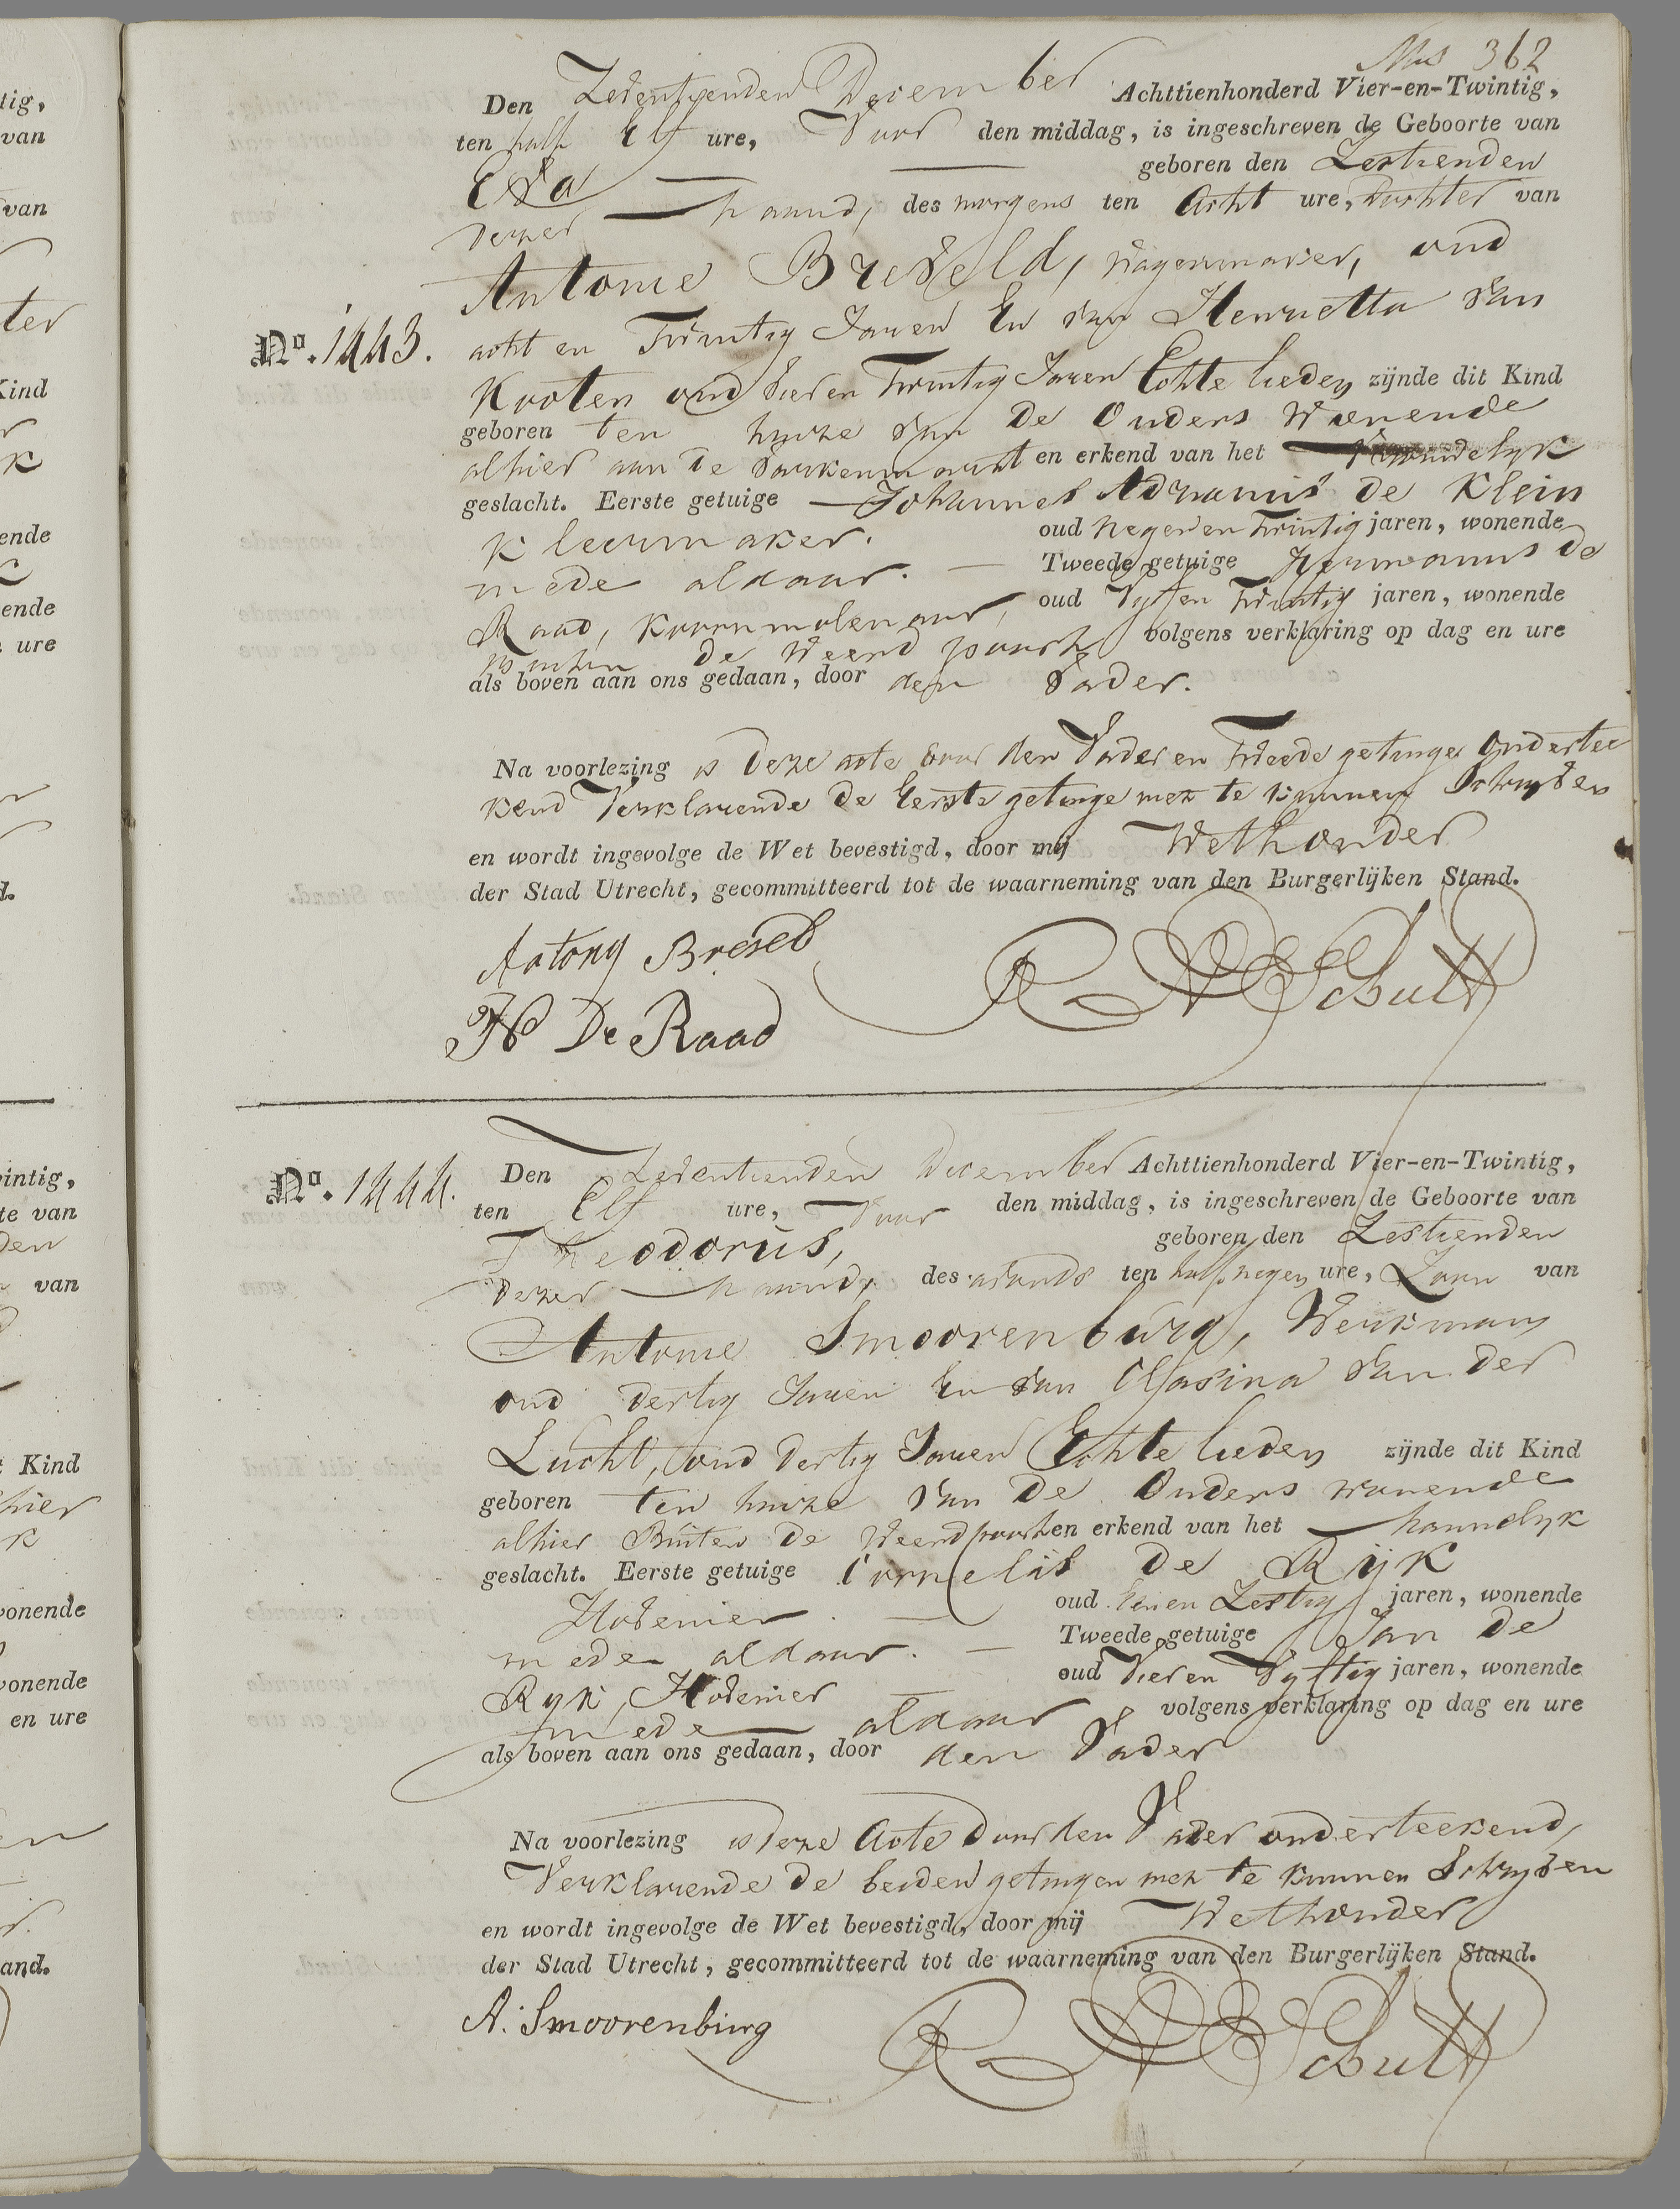 362
Den Zeventienden December Achttienhonderd Vier-en-Twintig,
ten half Elf ure, Voor den middag, is ingeschreven de Geboorte van
Eva geboren den Zestienden
dezer maand, des morgens ten Acht ure, dochter van
Antonie Breveld, wagenmaker, oud
No. 1443. acht en Twintig Jaren En van Henrietta van
Kooten oud vier en Twintig Jaren Echte lieden zijnde dit Kind
geboren ten huize van de Ouders wonende
alhier aan de Varkenmarkt en erkend van het Vrouwelyk
geslacht. Eerste getuige Johannes Adrianus de Klein
Kleermaker. oud Negen en Twintig jaren, wonende
mede aldaar. Tweede getuige Hermanus de
Raad, Koornmolenaar, oud Vyf en Twintig jaren, wonende
buiten de Weerd poort volgens verklaring op dag en ure
als boven aan ons gedaan, door den Vader.
Na voorlezing is deze acte door den Vader en Tweede getuige Ondertee
kend Verklarende de Eerste getuige niet te kunnen Schryven
en wordt ingevolge de Wet bevestigd, door mij Wethouder
der Stad Utrecht, gecommitteerd tot de waarneming van den Burgerlijken Stand.
Antony Breveld
H De Raad
No. 1444. Den Zeventienden December Achttienhonderd Vier-en-Twintig,
ten Elf ure, Voor den middag, is ingeschreven de Geboorte van
Theodorus, geboren den Zestienden
dezer maand, des avonds ten half negen ure, Zoon van
Antonie Smoorenburg, Werkman
oud dertig Jaren En van Clasina van der
Lucht, oud dertig Jaren Echte lieden zijnde dit Kind
geboren ten huize van de Ouders wonende
alhier Buiten de Weerdpoort en erkend van het mannelyk
geslacht. Eerste getuige Cornelis de Rijk
Hovenier oud Een en Zestig jaren, wonende
mede aldaar. Tweede getuige Jan de
Ryk, Hovenier oud Vier en Vyftig jaren, wonende
mede aldaar volgens verklaring op dag en ure
als boven aan ons gedaan, door den Vader
Na voorlezing is deze Acte door den Vader onderteekend,
Verklarende de beiden getuigen niet te kunnen Schryven
en wordt ingevolge de Wet bevestigd, door mij Wethouder
der Stad Utrecht, gecommitteerd tot de waarneming van den Burgerlijken Stand.
A. Smoorenburg